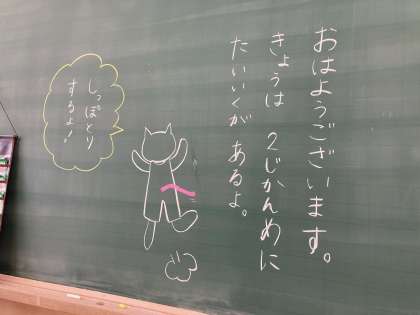 おはようございます。
きょうは 2じかんめに
たいいくが あるよ。
しっぽとり
するよ!